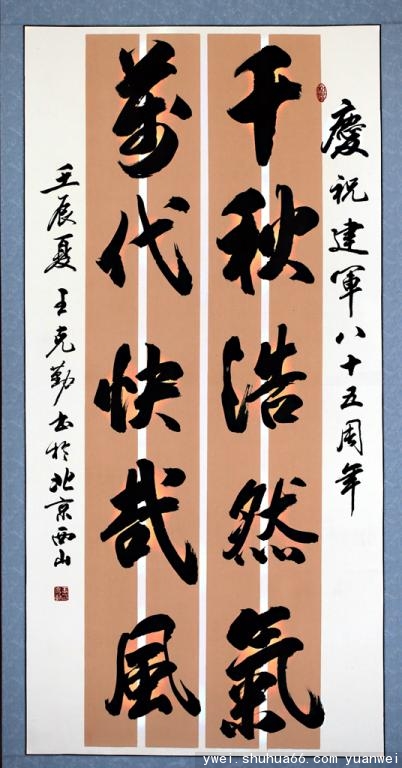 慶祝建軍八十五周年
千秋浩然氣
萬代快哉風
壬辰夏王克勤书於北京西山
ywei.shuhua66.com yuanwei